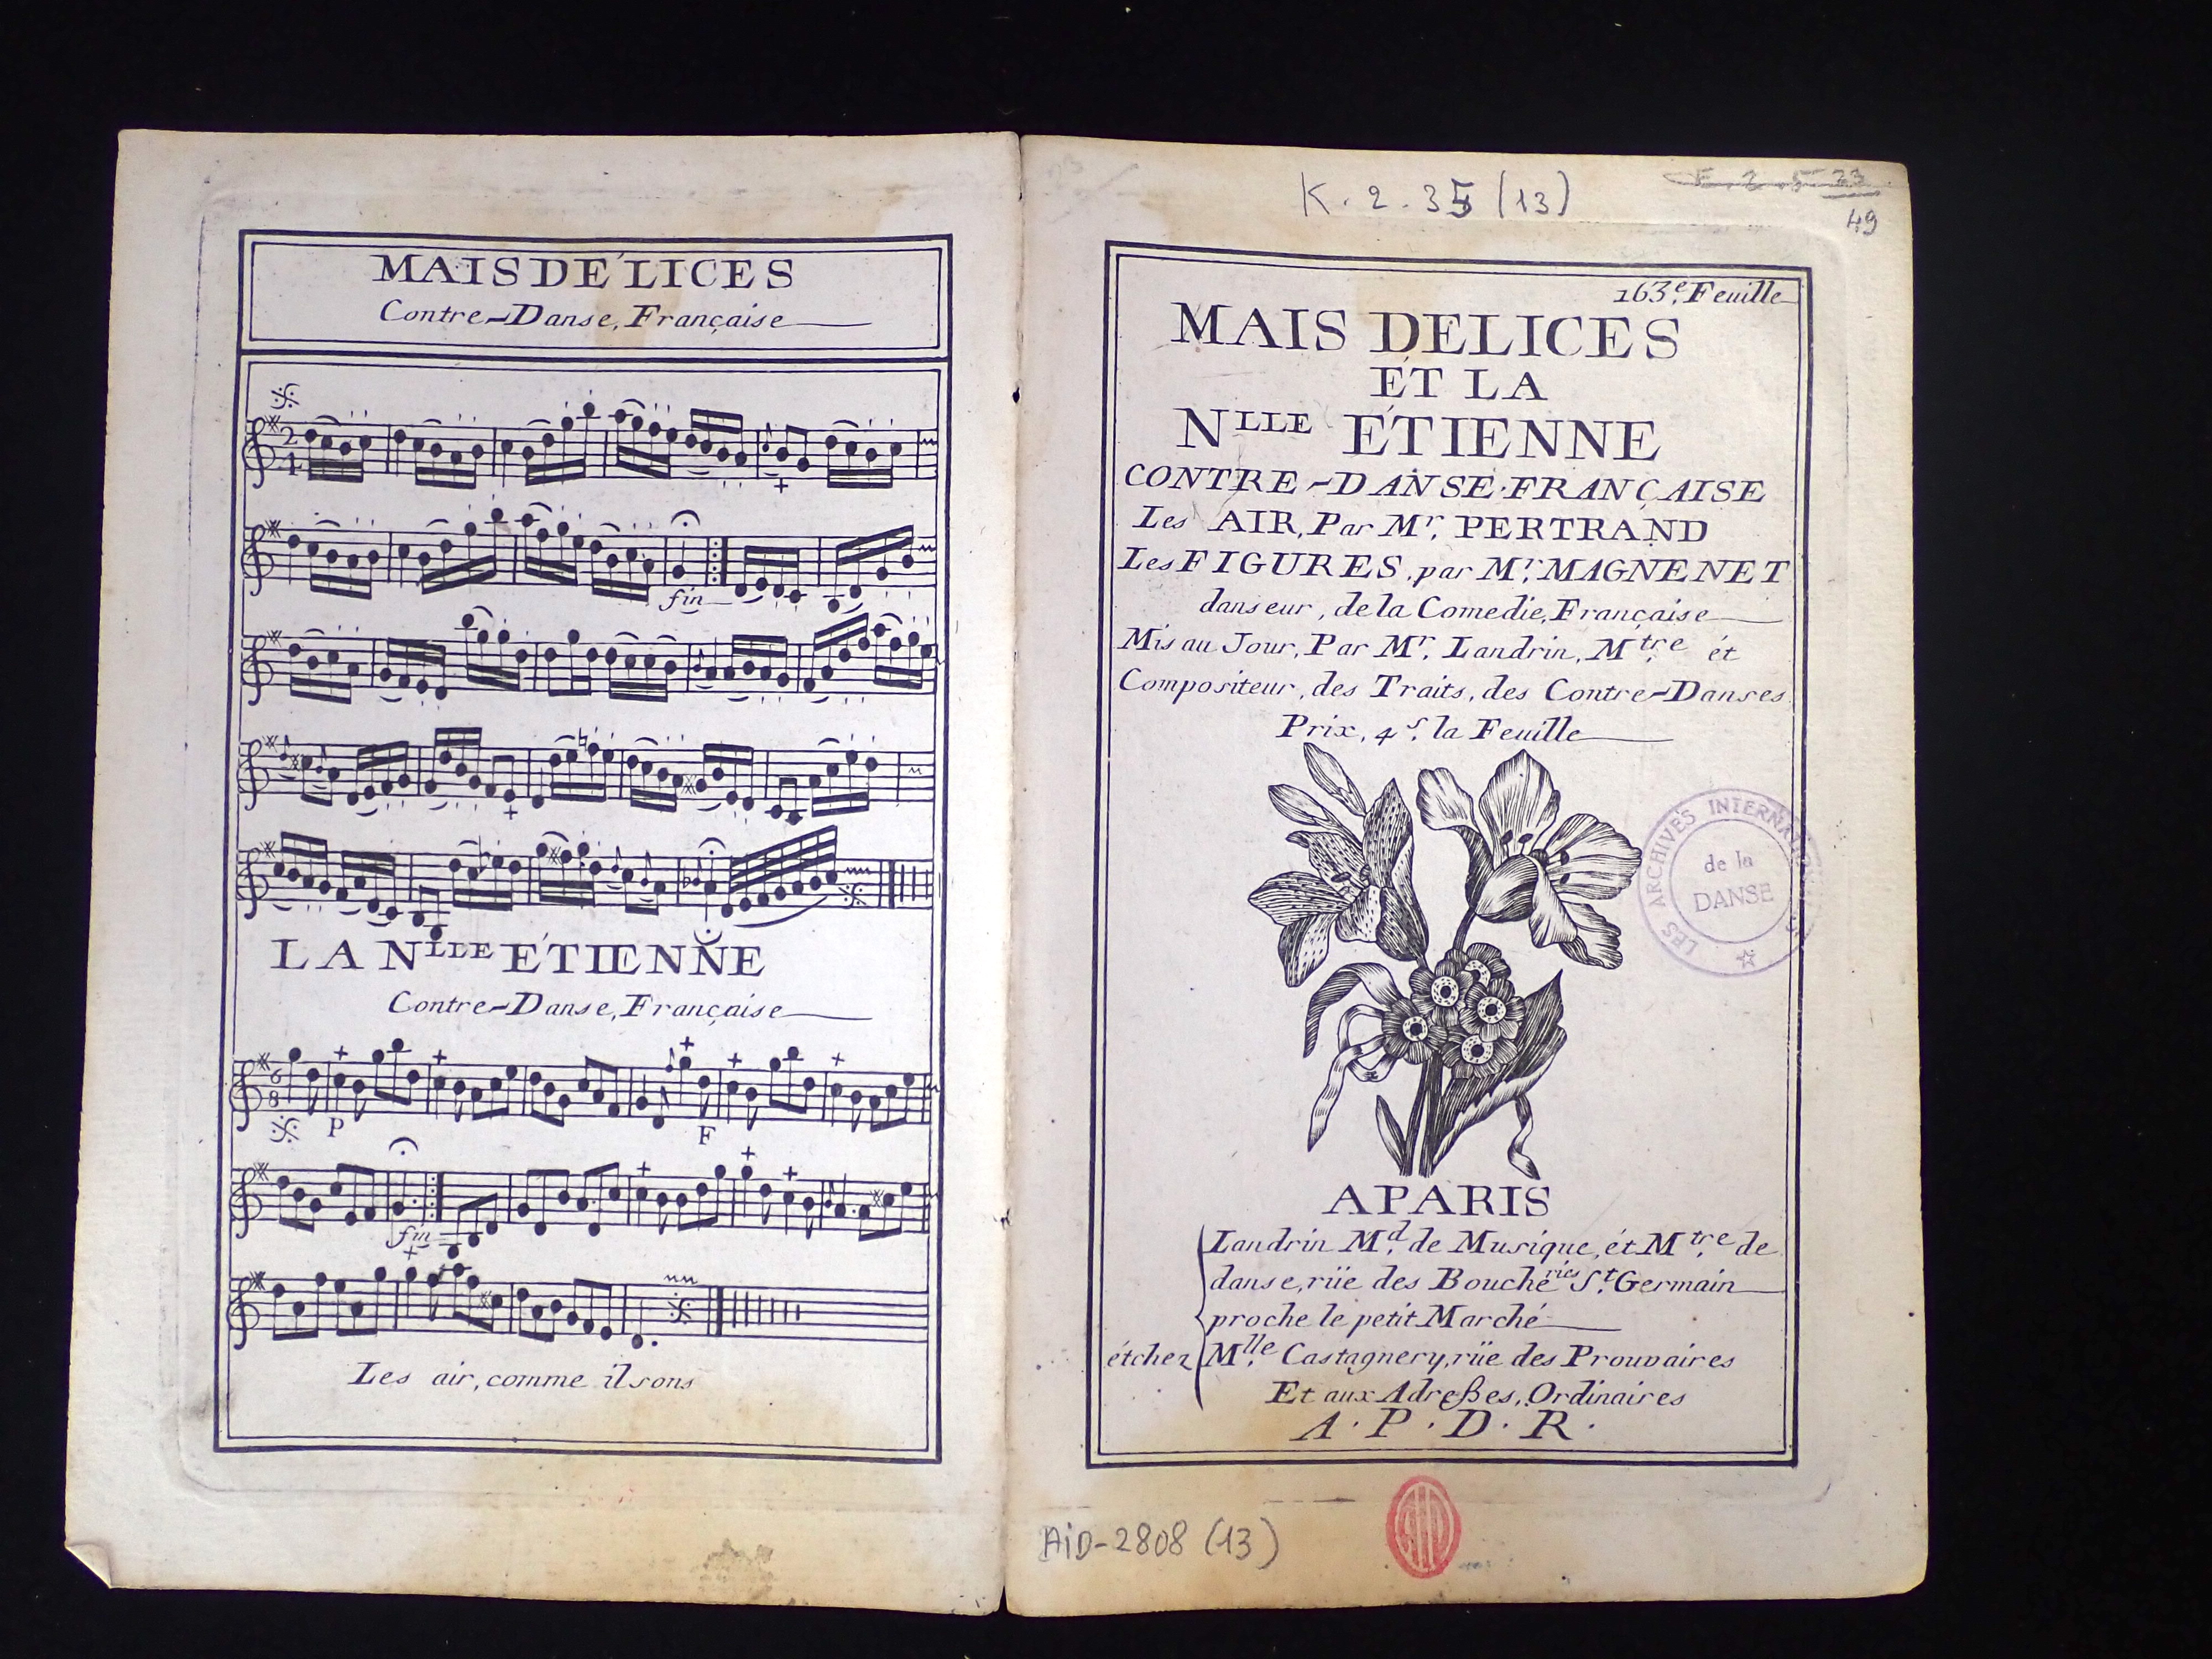 MAIS DÉLICES
Contre-Danse, Française
2
4
fin
LA NLLE ÉTIENNE
Contre-Danse, Française
6
8
P
F
fin
Les air, comme il sons
K. 2. 35 (13)
49
163e. Feuille
MAIS DELICES
ET LA
NLLE ÉTIENNE
CONTRE-DANSE FRANÇAISE
Les AIR, Par Mr. PERTRAND
Les FIGURES, par Mr. MAGNENET
danseur, de la Comedie, Française
Mis au Jour, Par Mr. Landrin, Mtre. ét
Compositeur, des Traits, des Contre-Danses
Prix, 4 s. la Feuille
LES ARCHIVES INTERNATIONALES
de la
DANSE
A PARIS
Landrin Md. de Musique, ét Mtre. de
danse, rüe des Boucheries St. Germain
proche le petit Marché
ét chez Mlle. Castagnery, rüe des Prouvaires
Et aux Adreßes, Ordinaires
A. P. D. R.
AID-2808 (13)